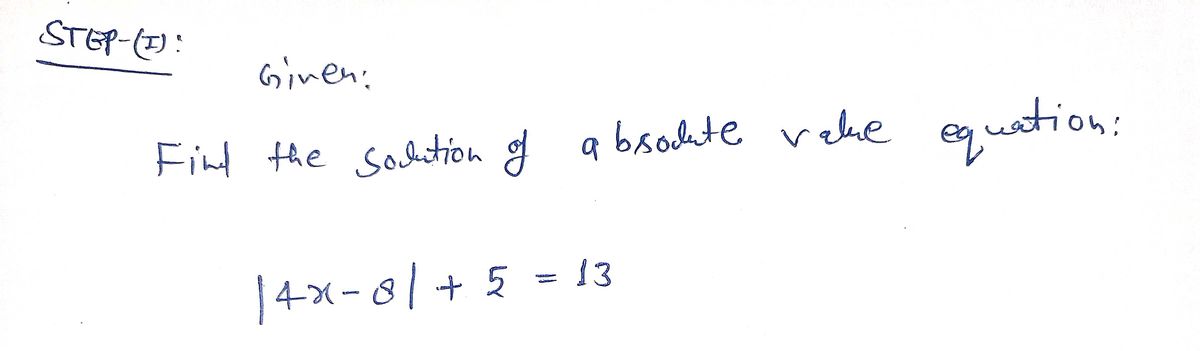 STEP-(I):
Given:
Find the solution of absolute value equation:
|4x-8| + 5 = 13